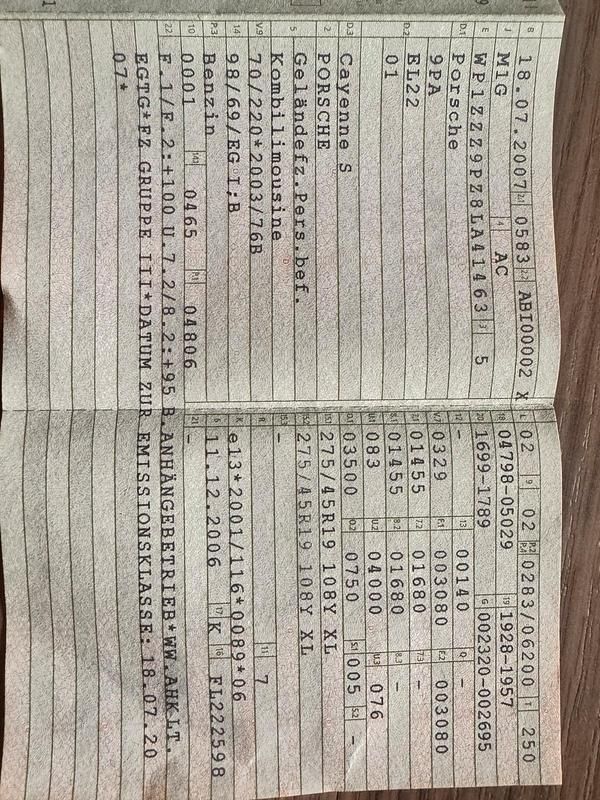 B 18.07.2007 2.1 0583 2.2 ABI00002 X
J M1G 4 AC
E WP1ZZZ9PZ8LA41463 3 5
D.1 Porsche
9PA
D.2 EL22
01
D.3 Cayenne S
2 PORSCHE
5 Geländefz.Pers.bef.
Kombilimousine
V.9 70/220*2003/76B
14 98/69/EG I;B
P.3 Benzin
10 0001 14.1 0465 P.1 04806
L 02 9 02 P.2 P.4 0283/06200 T 250
18 04798-05029 19 1928-1957
20 1699-1789 G 002320-002695
12 - 13 00140 Q -
V.7 0329 F.1 003080 F.2 003080
7.1 01455 7.2 01680 7.3 -
8.1 01455 8.2 01680 8.3 -
U.1 083 U.2 04000 U.3 076
O.1 03500 O.2 0750 S.1 005 S.2 -
15.1 275/45R19 108Y XL
15.2 275/45R19 108Y XL
15.3 -
R 11 7
K e13*2001/116*0089*06
6 11.12.2006 17 K 16 FL222598
21 -
22 F.1/F.2:+100 U.7.2/8.2:+95 B.ANHÄNGEBETRIEB*WW.AHK LT.
EGTG*FZ GRUPPE III*DATUM ZUR EMISSIONSKLASSE: 18.07.20
07*